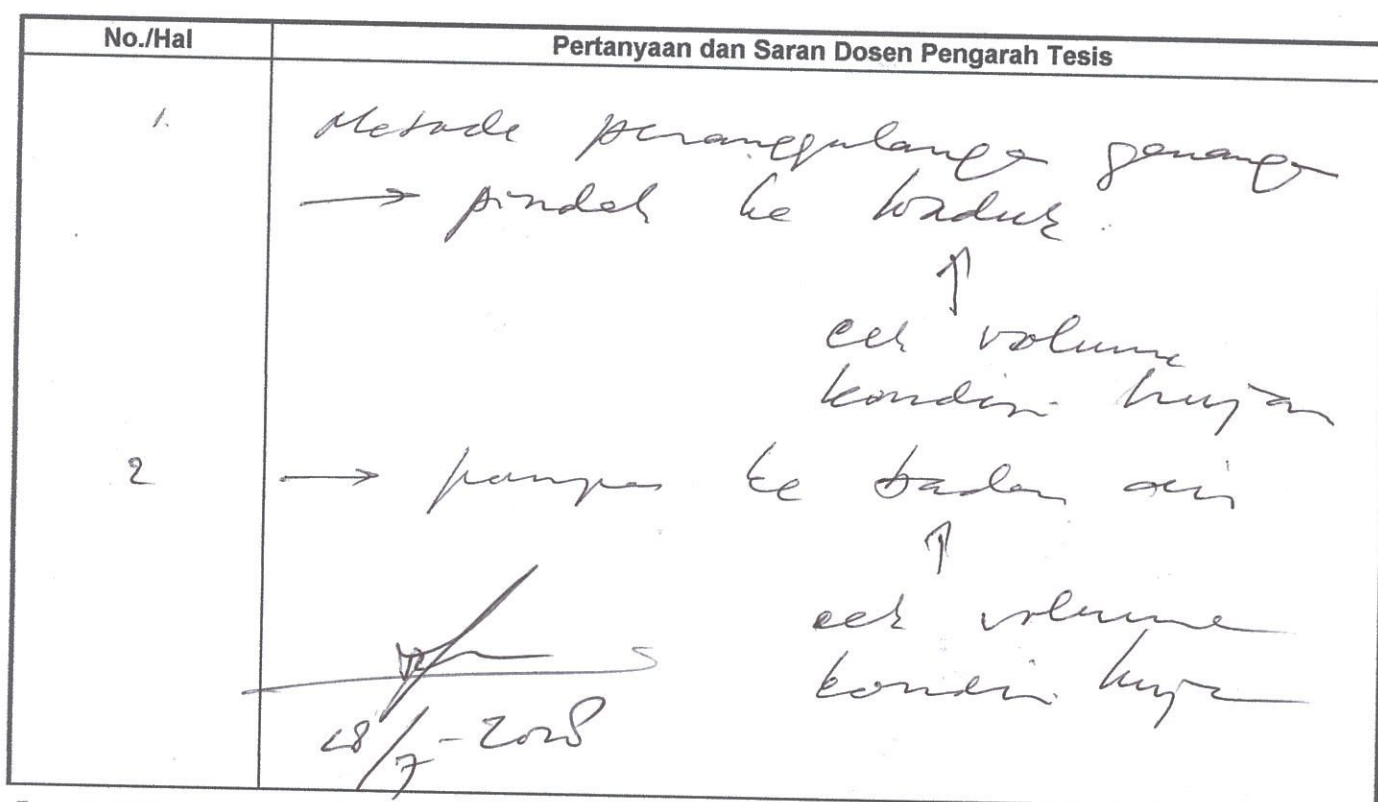 No./Hal
Pertanyaan dan Saran Dosen Pengarah Tesis
1.
Metode penanggulangan genangan
→ pindah ke waduk
↑
cek volume
kondisi hujan
2 → pompa ke badan air
↑
cek volume
kondisi hujan
28/7-2018